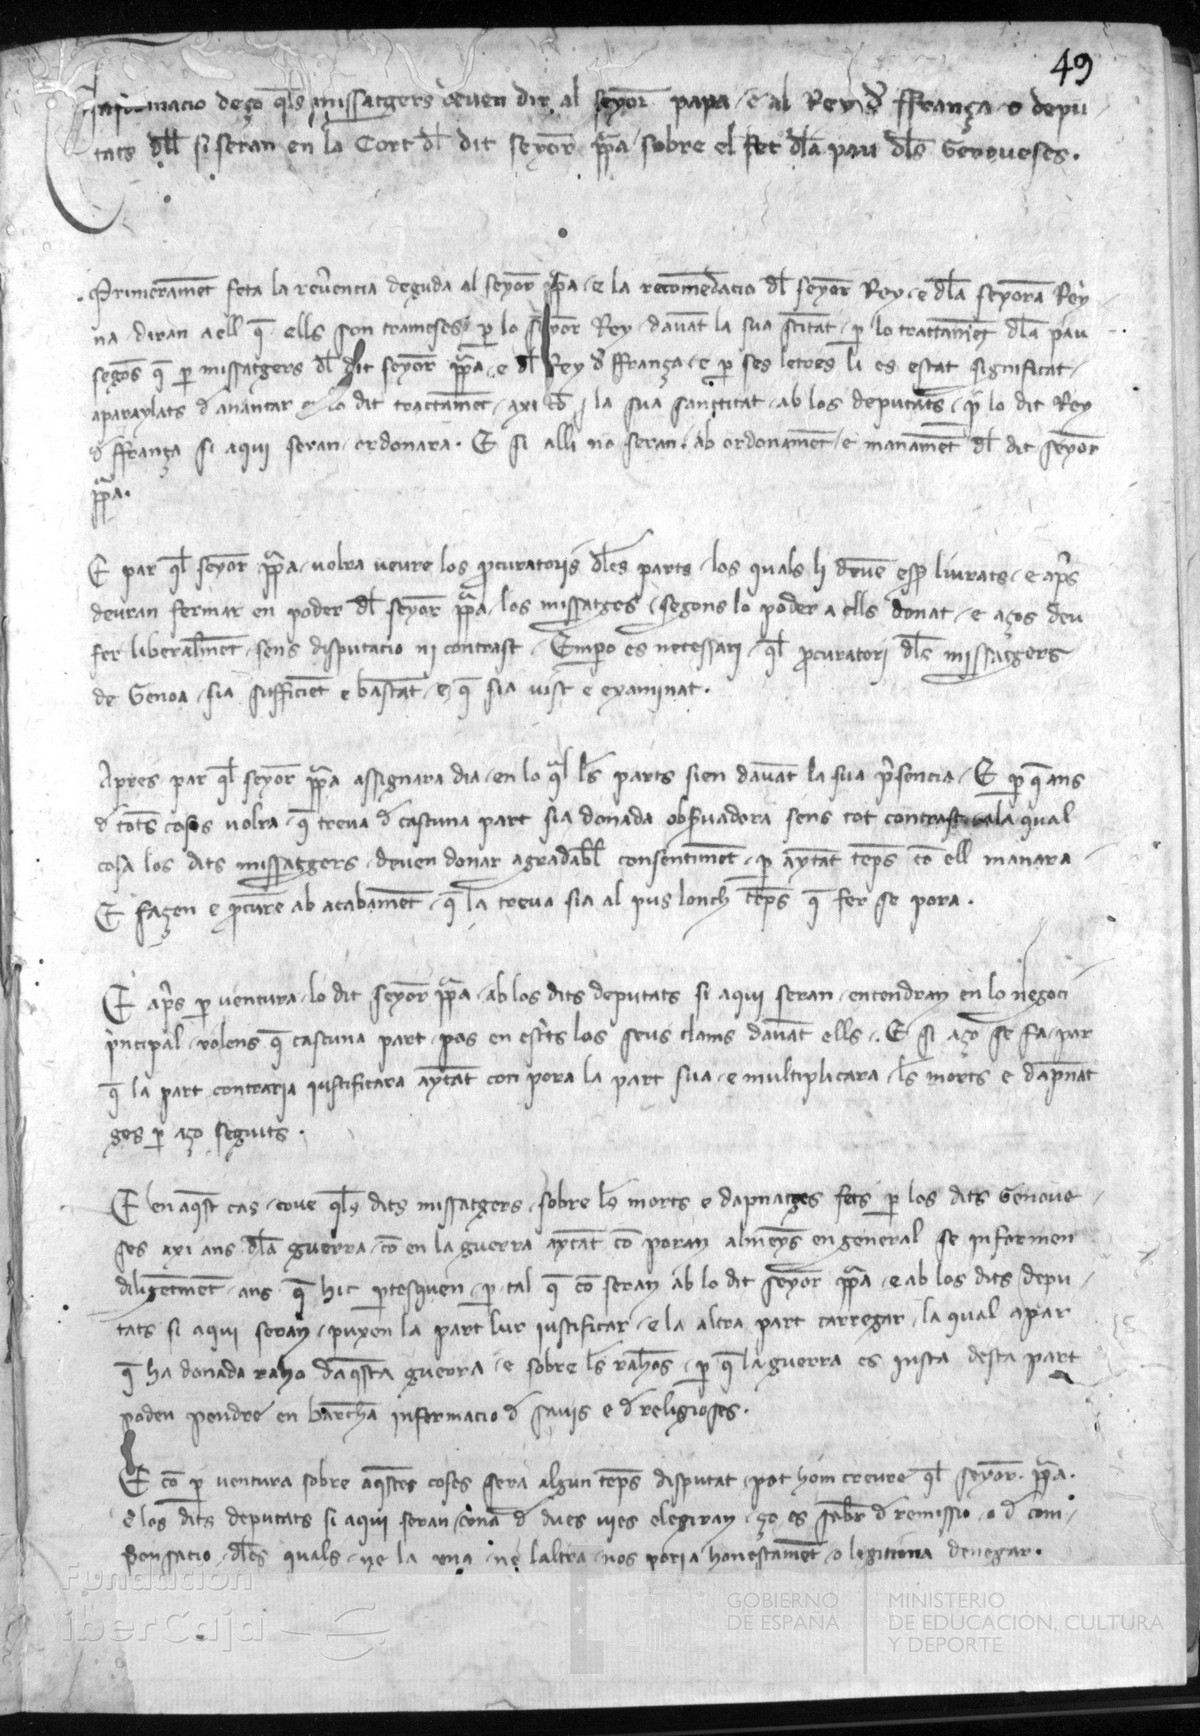 49
Informacio deço q̄ls missatgers deuen dir al seyor papa e al Rey d̄ ffrança o depu
tats dell si seran en la Cort dl̄ dit seyor pp̄a sobre el fet dla pau dls Genoueses.
Primerament feta la reuerencia deguda al seyor pp̄a e la recomēdacio dl̄ seyor Rey e dla seyora Rey
na diran a ell q̄ ells son trameses per lo seyor Rey dauāt la sua sc̄titat p̱ lo tractamēt dla pau
segōs q̄ p̱ missatgers dl̄ dit seyor pp̄a e dl̄ Rey d̄ ffrança e p̱ ses letres li es estat significat
aparaylats d̄ anantar lo dit tractamēt axi cō la sua sanctitat ab los deputats p̱ lo dit Rey
d̄ ffrança si aqui seran ordonara. E si alli no seran ab ordonamēt e manamēt dl̄ dit seyor
pp̄a.
E par q̄l seyor pp̄a volra veure los p̄curatoris dles parts los quals li deuē esser liurats e ap̄s
deuran fermar en poder dl̄ seyor pp̄a los missatges segons lo poder a ells donat e aços deu
fer liberalmēt sens disputacio ni contrast. Empero es necessari q̄l p̄curatori dls missatgers
de Genoa sia sufficiēt e bastāt e q̄ sia vist e examinat.
Apres par q̄l seyor pp̄a assignara dia en lo q̄l les parts sien dauāt la sua p̄sencia. E p̱ q̄ ans
d̄ totes coses volra q̄ treua d̄ cascuna part sia donada obs̄uadora sens tot contrast a la qual
cosa los dits missatgers deuen donar agradabl̄ consentimēt p̱ aytāt tēps cō ell manara
E façen e p̄curē ab acabamēt q̄ la treua sia al pus lonch tēps q̄ fer se pora.
E ap̄s p̱ ventura lo dit seyor pp̄a ab los dits deputats si aqui seran entendran en lo negoci
p̄ncipal volens q̄ cascuna part pos en esc̄ts los seus clams dauāt ells. E si aço se fa par
q̄ la part contraria iustificara aytāt con pora la part sua e multiplicara les morts e dapnat
ges p̱ aço seguits.
E en aq̄st cas coue q̄ls dits missatgers sobre les morts e dapnatges fets p̱ los dits Genoue
ses axi ans dla guerra cō en la guerra aytāt cō poran almeyns en general se informen
diligētmēt ans q̄ hic p̱tesquen p̱ tal q̄ cō seran ab lo dit seyor pp̄a e ab los dits depu
tats si aqui seran puxen la part lur iustificar e la altra part carregar la qual apar
q̄ ha donada raho daq̄sta guerra e sobre les rahōs p̱ q̄ la guerra es iusta desta part
poden pendre en barchā informacio d̄ sauis e d̄ religioses.
E cō p̱ ventura sobre aq̄stes coses sera algun tēps disputat pot hom creure q̄l seyor pp̄a
e los dits deputats si aqui seran d̄ dues vies elegiran ço es saber d̄ remissio o d̄ com
pensacio dles quals ne la vna ne laltra nos poria honestamēt o legitima denegar.
Fundación
iberCaja
GOBIERNO
DE ESPAÑA
MINISTERIO
DE EDUCACIÓN, CULTURA
Y DEPORTE